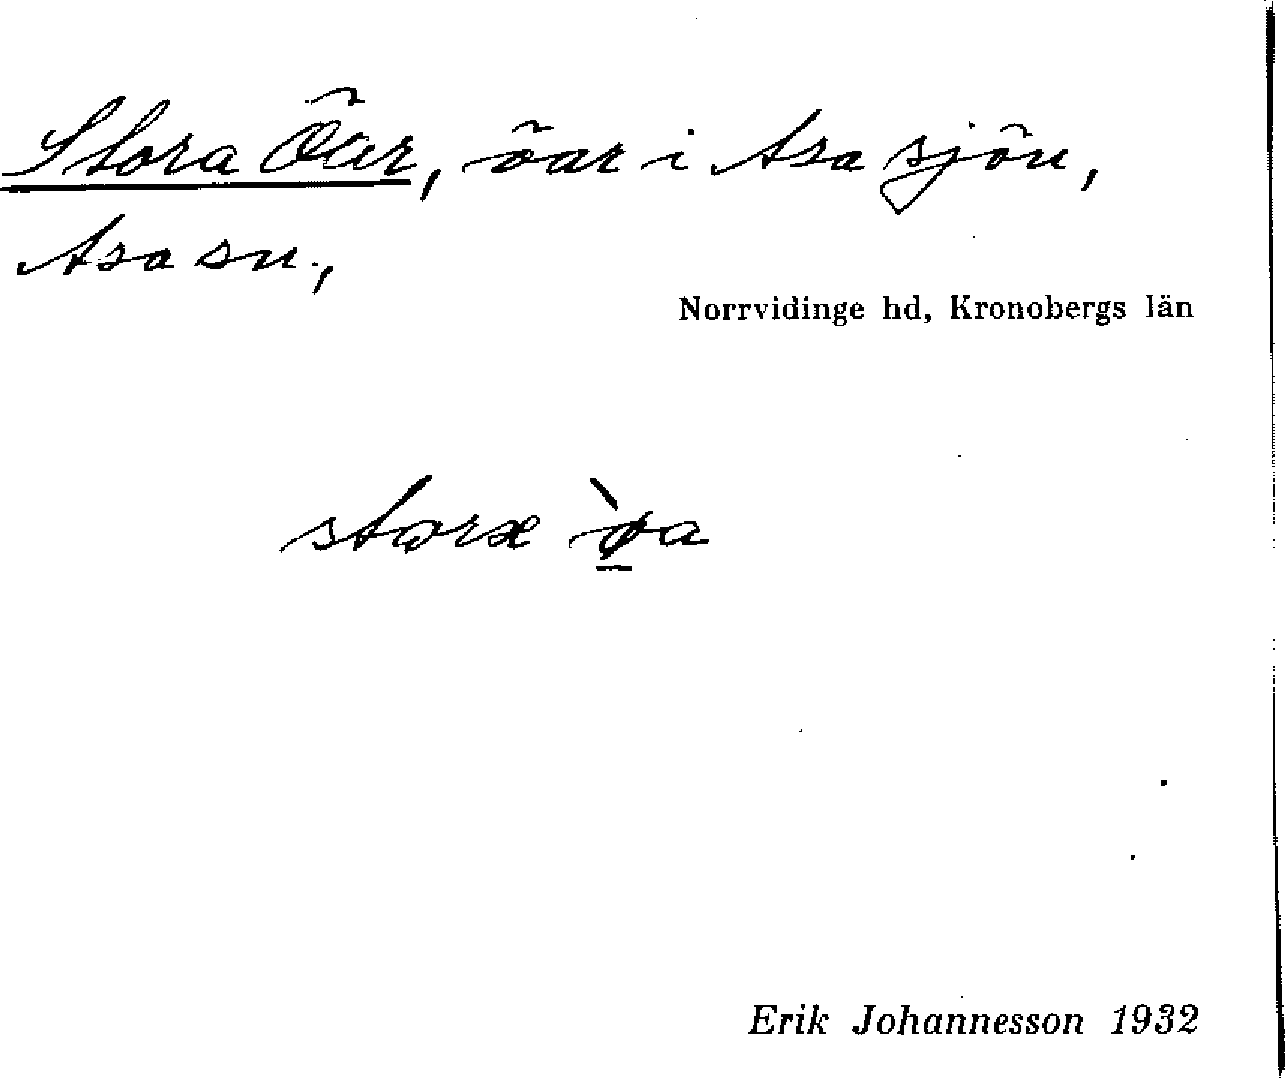 Stora Öar, öar i Asasjön,
Asa sn.,
Norrvidinge hd, Kronobergs län
storæ ø̀a
Erik Johannesson 1932